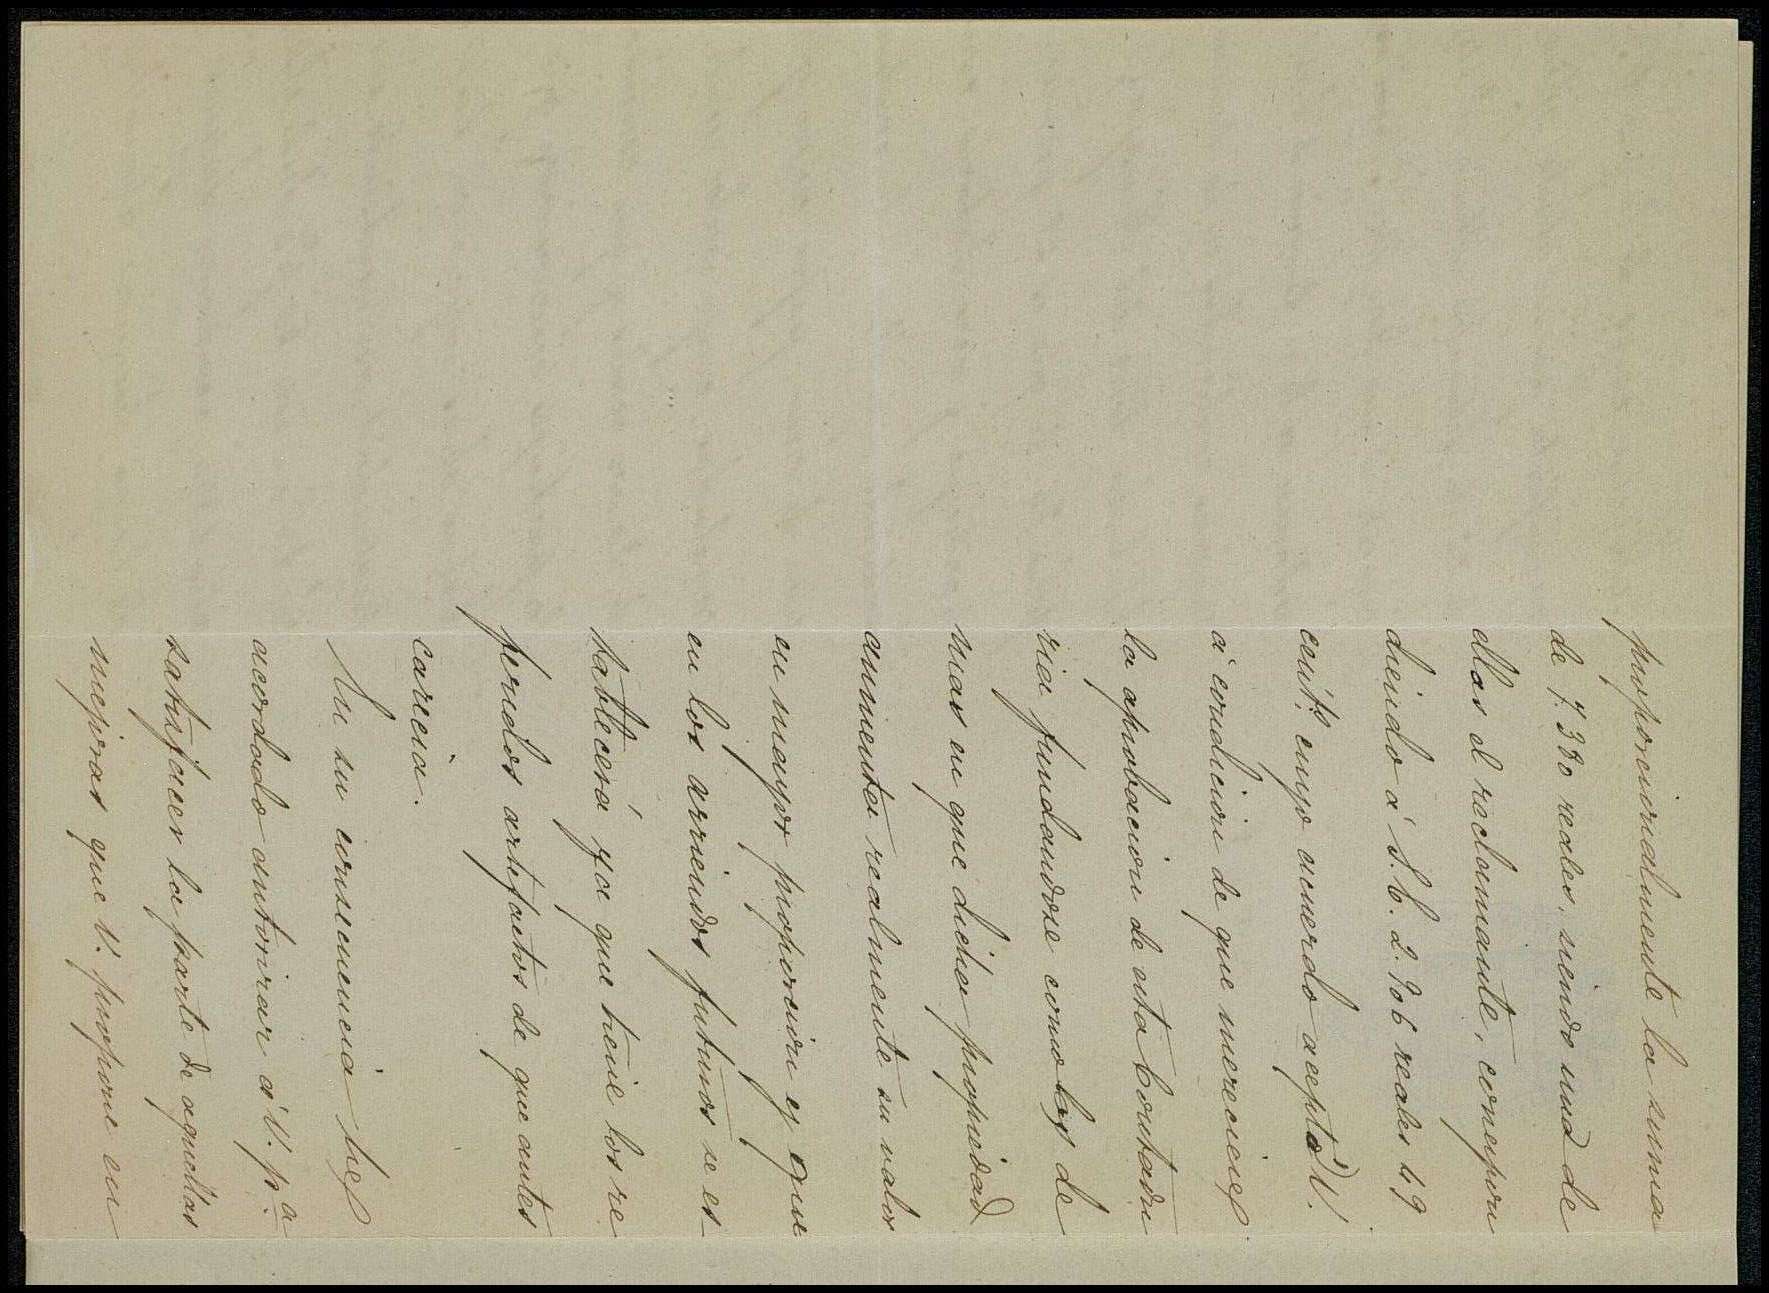 proporcionalmente la suma
de 7.380 reales, siendo una de
ellas el reclamante, correspon
diendo á S. E. 2.906 reales 49
cent.s cuyo acuerdo aceptó V.
á condicion de que mereciese
la aprobacion de esta Contadu
ria fundandose como los de
mas en que dicha propiedad
aumenta realmente su valor
en mayor proporcion y que
en los arriendos futuros se es-
tablecerá ya que tiene los re
feridos artefactos de que antes
carecia.
En su consecuencia he
acordado autorizar á V. p.a
satisfacer la parte de aquellas
mejoras que V. propone en